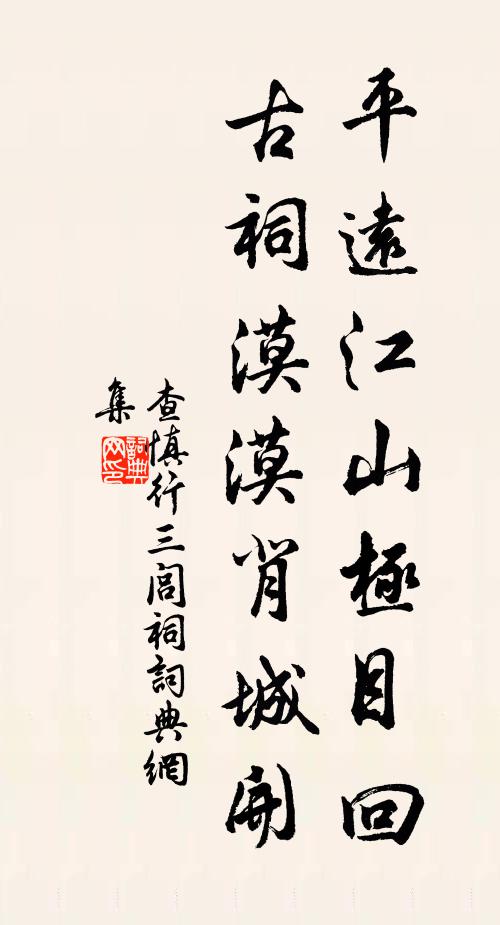 平遠江山極目回
古祠漠漠背城開
查慎行三閭祠詞典網
集
詞典
网印